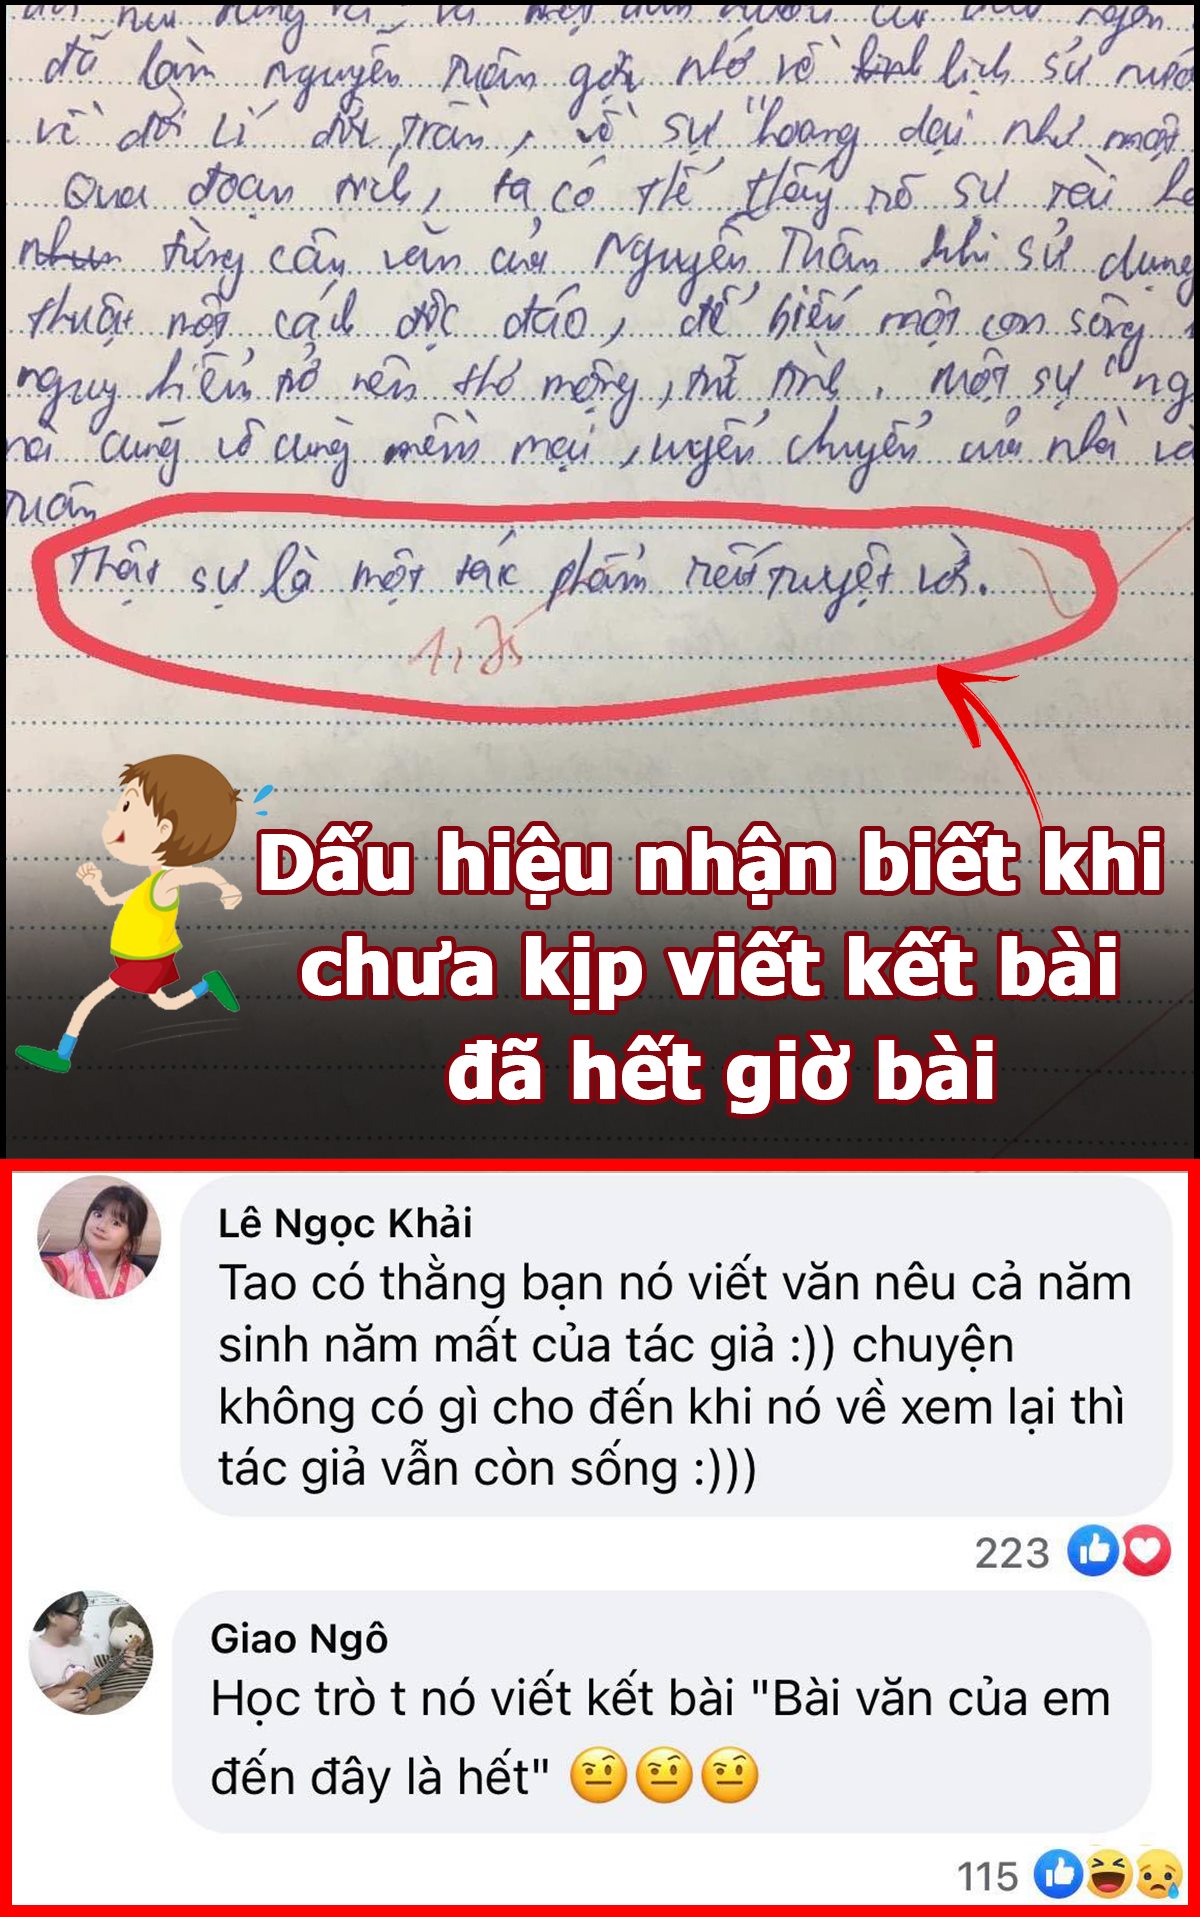 đã làm Nguyễn Tuân gợi nhớ về lịch sử nước
về đời Lí đời Trần, về sự "hoang dại như một
Qua đoạn trích, ta có thể thấy rõ sự tài
từng câu văn của Nguyễn Tuân khi sử dụng
thuật một cách độc đáo, để biến một con sông
nguy hiểm trở nên thơ mộng, trữ tình. Một sự "ng
cũng vô cùng mềm mại, uyển chuyển của nhà
Tuân
Thật sự là một tác phẩm rất tuyệt vời.
Dấu hiệu nhận biết khi
chưa kịp viết kết bài
đã hết giờ bài
Lê Ngọc Khải
Tao có thằng bạn nó viết văn nêu cả năm
sinh năm mất của tác giả :)) chuyện
không có gì cho đến khi nó về xem lại thì
tác giả vẫn còn sống :)))
223
Giao Ngô
Học trò t nó viết kết bài "Bài văn của em
đến đây là hết" 🤨🤨🤨
115